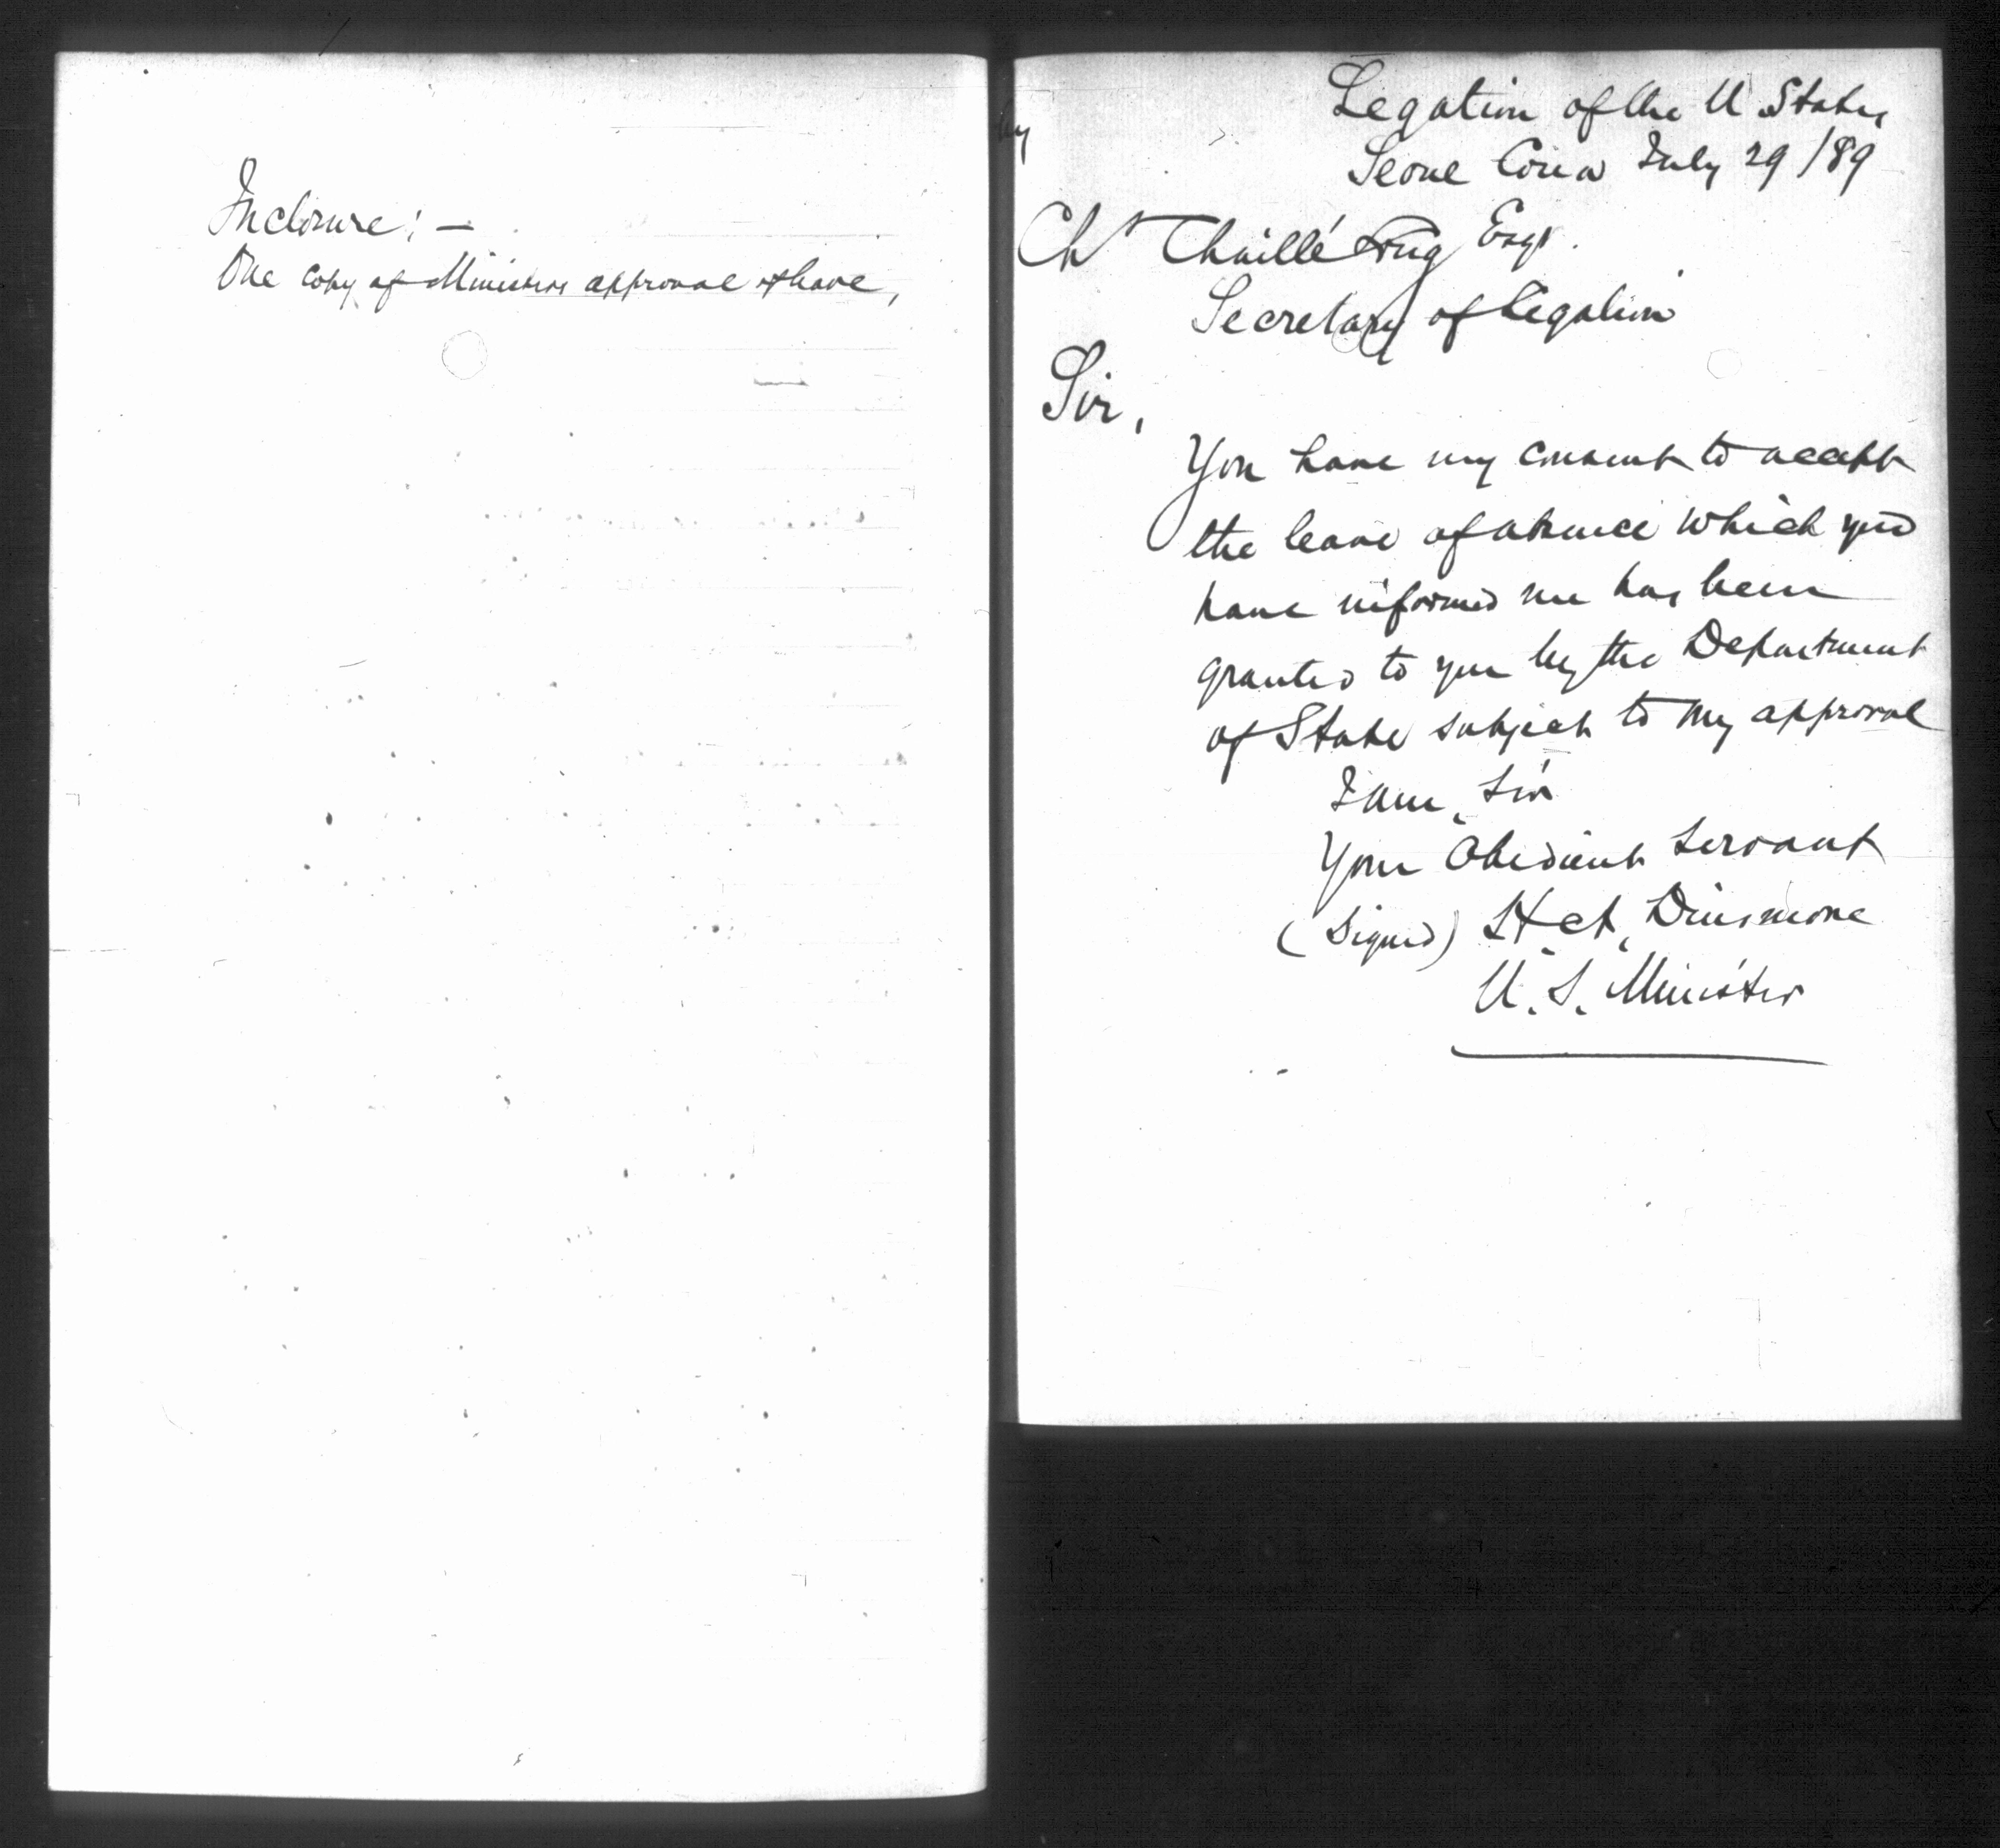 Inclosure: —
One copy of Ministers approval of leave,
Legation of the U States
Seoul Corea July 29/89
Chs Chaillé Long Esqr.
Secretary of Legation
Sir,
You have my consent to accept
the leave of absence which you
have informed me has been
granted to you by the Department
of State subject to my approval
I am, Sir
Your Obedient Servant
(Signed) H. A. Dinsmore
U. S. Minister